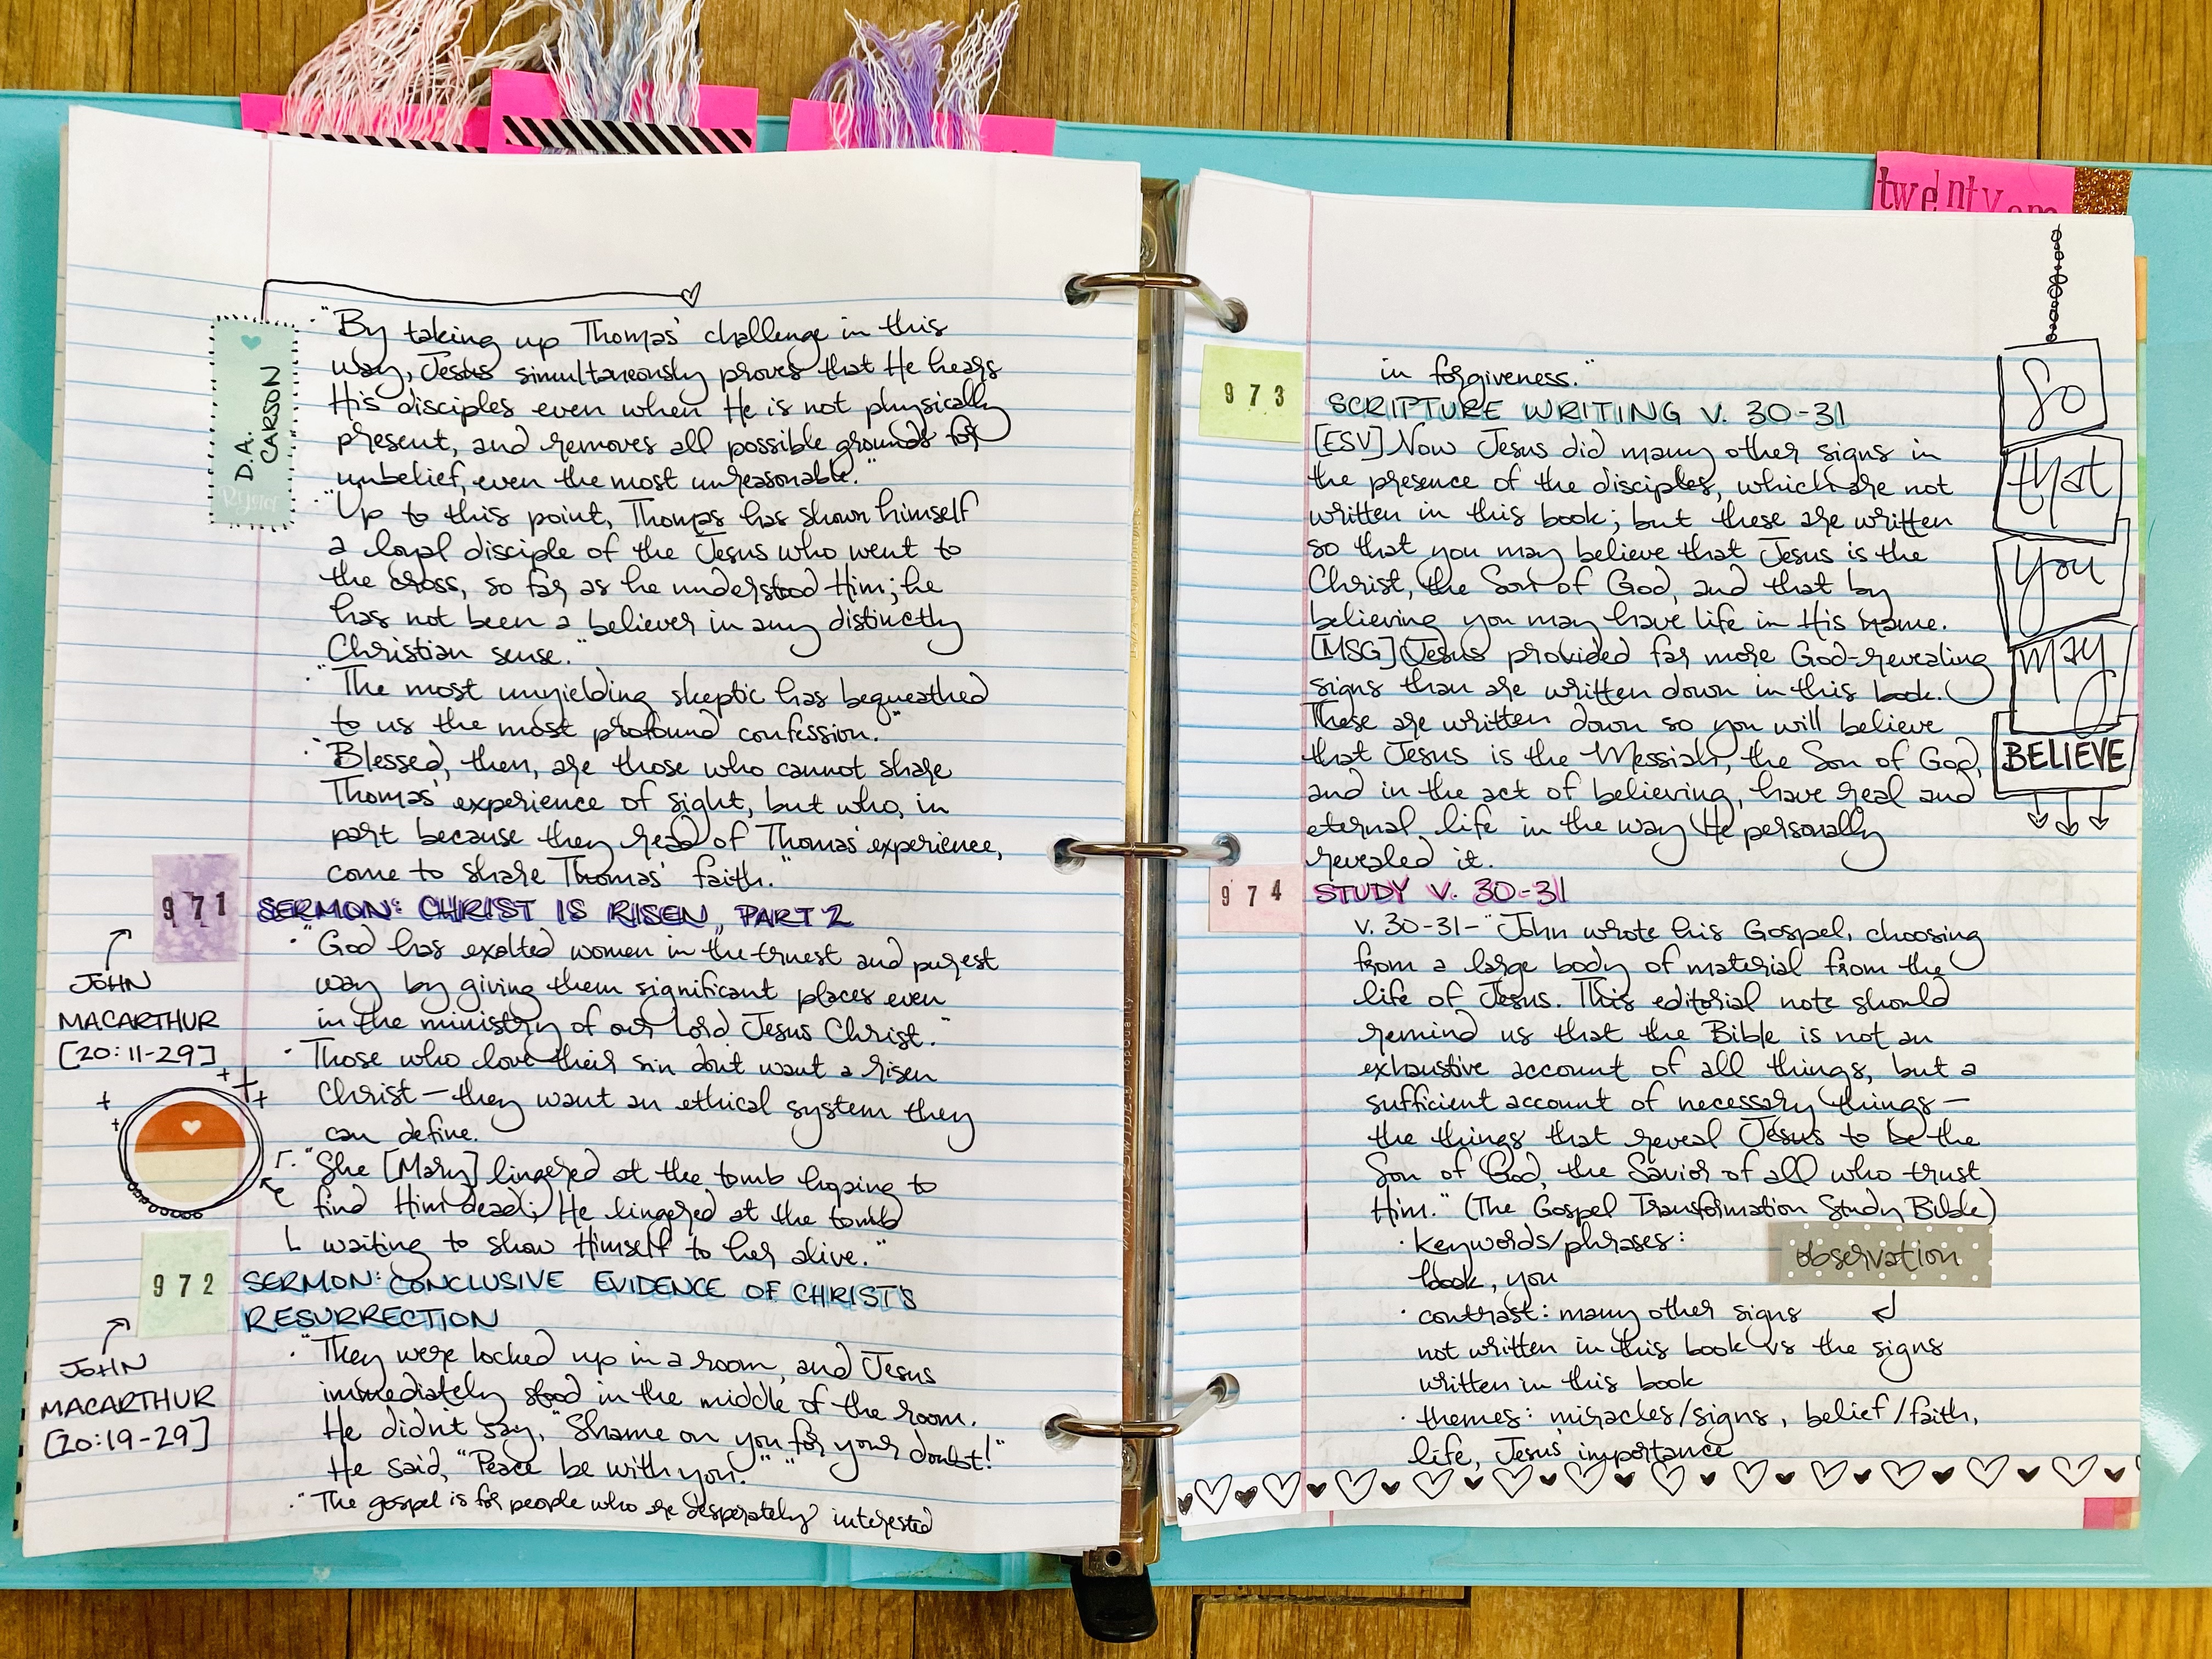 D.A.
CARSON
"By taking up Thomas' challenge in this
way, Jesus simultaneously proves that He hears
His disciples even when He is not physically
present, and removes all possible grounds for
unbelief, even the most unreasonable."
"Up to this point, Thomas has shown himself
a loyal disciple of the Jesus who went to
the cross, so far as he understood Him; he
has not been a believer in any distinctly
Christian sense."
"The most unyielding skeptic has bequeathed
to us the most profound confession."
"Blessed, then, are those who cannot share
Thomas' experience of sight, but who, in
part because they read of Thomas' experience,
come to share Thomas' faith."
971 SERMON: CHRIST IS RISEN, PART 2
JOHN
MACARTHUR
[20:11-29]
· "God has exalted women in the truest and purest
way by giving them significant places even
in the ministry of our Lord Jesus Christ."
· Those who love their sin don't want a risen
Christ — they want an ethical system they
can define.
· "She [Mary] lingered at the tomb hoping to
find Him dead; He lingered at the tomb
waiting to show Himself to her alive."
972 SERMON: CONCLUSIVE EVIDENCE OF CHRIST'S
RESURRECTION
JOHN
MACARTHUR
[20:19-29]
· "They were locked up in a room, and Jesus
immediately stood in the middle of the room.
He didn't say, "Shame on you for your doubt!"
He said, "Peace be with you." "
· "The gospel is for people who are desperately interested
twenty one
in forgiveness."
973 SCRIPTURE WRITING V. 30-31
[ESV] Now Jesus did many other signs in
the presence of the disciples, which are not
written in this book; but these are written
so that you may believe that Jesus is the
Christ, the Son of God, and that by
believing you may have life in His name.
[MSG] Jesus provided far more God-revealing
signs than are written down in this book.
These are written down so you will believe
that Jesus is the Messiah, the Son of God,
and in the act of believing, have real and
eternal life in the way He personally
revealed it.
So
that
you
may
BELIEVE
974 STUDY V. 30-31
v. 30-31 - "John wrote his Gospel, choosing
from a large body of material from the
life of Jesus. This editorial note should
remind us that the Bible is not an
exhaustive account of all things, but a
sufficient account of necessary things —
the things that reveal Jesus to be the
Son of God, the Savior of all who trust
Him." (The Gospel Transformation Study Bible)
observation
· keywords/phrases:
book, you
· contrast: many other signs
not written in this book vs the signs
written in this book
· themes: miracles/signs, belief/faith,
life, Jesus' importance